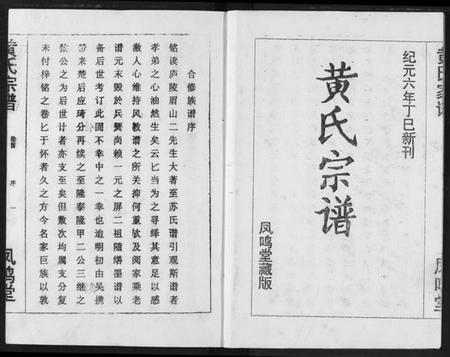 黄氏宗谱
纪元六年丁巳新刊
黄氏宗谱
凤鸣堂藏版
凤鸣堂
合修族谱序
铭读庐陵眉山二先生大著至苏氏谱引观斯谱者
孝弟之心油然生矣云匕当为之寻绎其意足以感
激人心维持风教谱之所关抑何重欤及阅家乘老
谱元末毁於兵燹尚赖一元之屏二祖随缮墨谱以
备后世考订此固不幸中之一幸也迨明初由吴携
带来楚后应琦分再续之至隆泰隆甲二公三继之
敍公之为后世计者亦支至矣但敷次均属支分复
未付梓铭之卷匕于怀者久之方今名家巨族以敦
黄氏宗谱
卷首
序
一
凤鸣堂